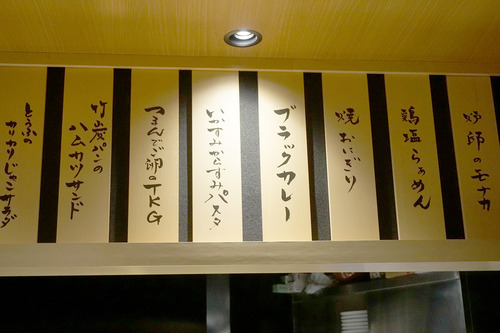 妙師のモナカ
鶏塩らぁめん
焼おにぎり
ブラックカレー
いかすみからすみパスタ
つまんでご卵のTKG
竹炭パンの
ハムカツサンド
とうふの
カリカリじゃこサラダ